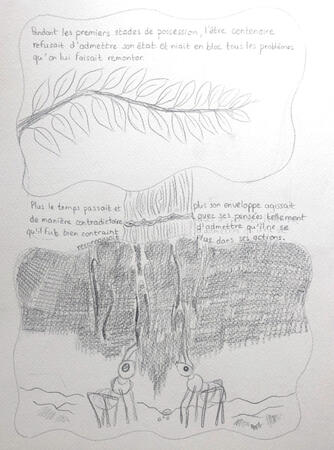 Pendant les premiers stades de possession, l'être centenaire
refusait d'admettre son état et niait en bloc tous les problèmes
qu'on lui faisait remonter.
Plus le temps passait et plus son enveloppe agissait
de manière contradictoire avec ses pensées tellement
qu'il fut bien contraint d'admettre qu'il ne se
reconnaissait plus dans ses actions.